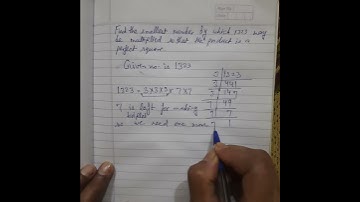 Find the smallest number by which 1323 may
be multiplied so that the product is a
perfect square.
Given no is 1323
3 1323
3 441
3 147
7 49
7 7
1
1323 = 3×3×3×7×7
is left for making
so we need one more